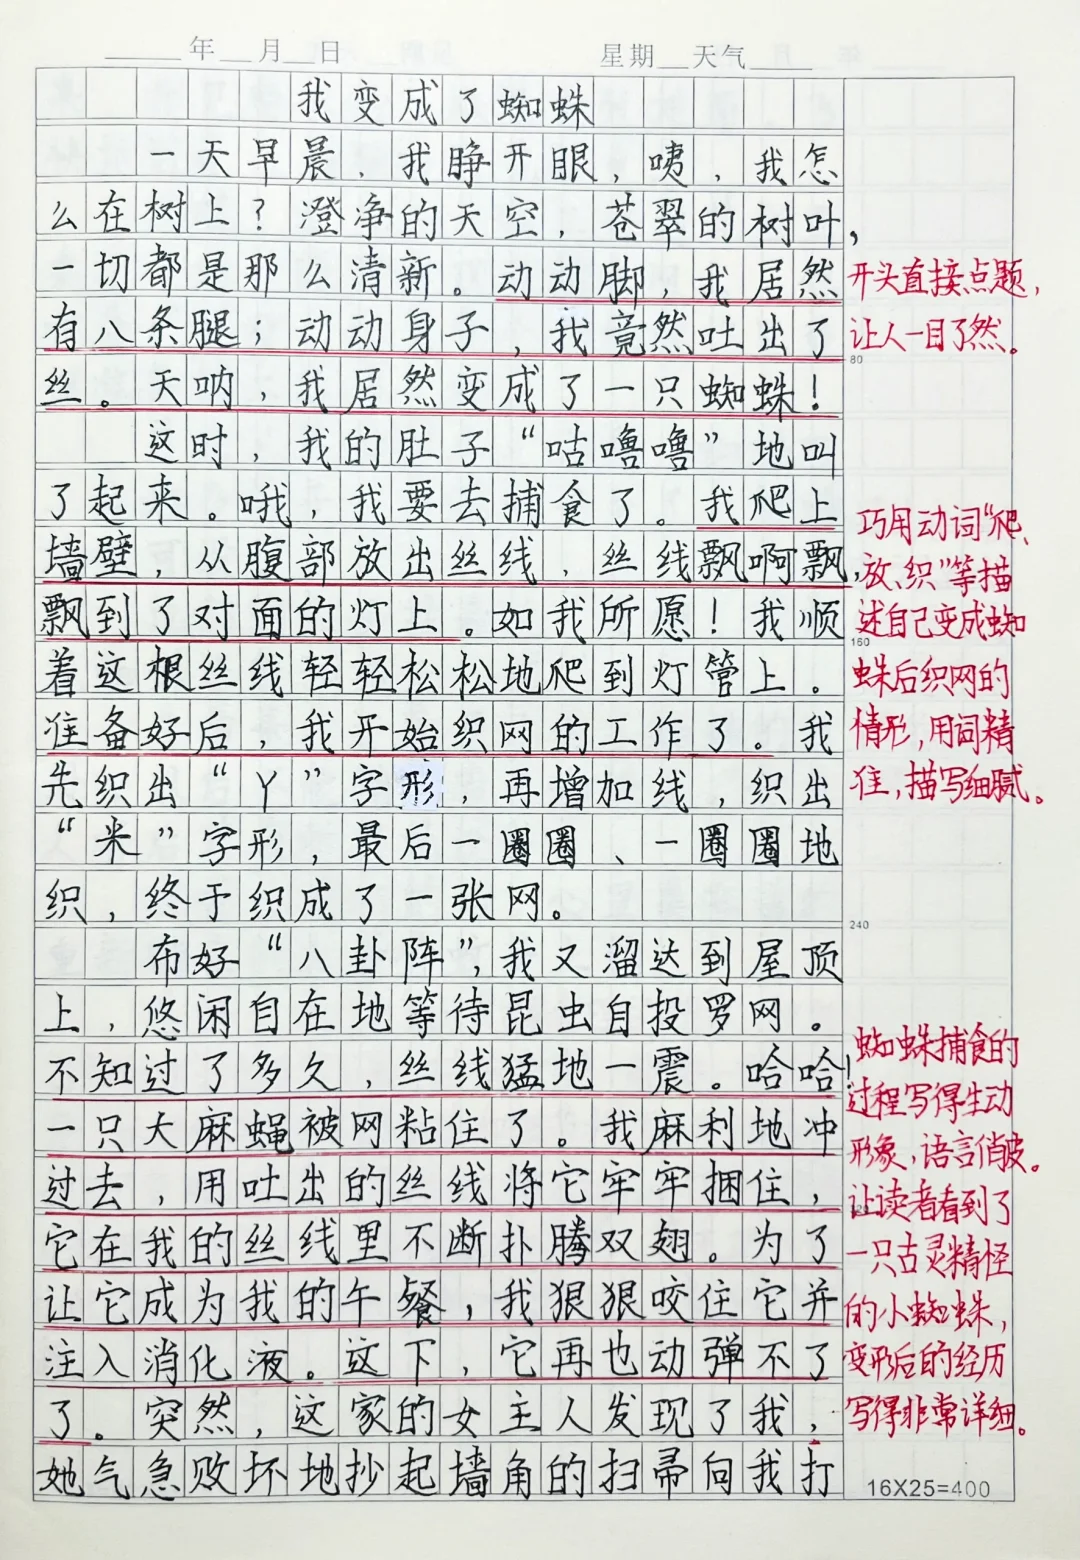 年 月 日 星期 天气
我变成了蜘蛛
一天早晨，我睁开眼，咦，我怎
么在树上？澄净的天空，苍翠的树叶，
一切都是那么清新。动动脚，我居然
有八条腿；动动身子，我竟然吐出了
丝。天呐，我居然变成了一只蜘蛛！
这时，我的肚子“咕噜噜”地叫
了起来。哦，我要去捕食了。我爬上
墙壁，从腹部放出丝线，丝线飘啊飘，
飘到了对面的灯上。如我所愿！我顺
着这根丝线轻轻松松地爬到灯管上。
准备好后，我开始织网的工作了。我
先织出“丫”字形，再增加线，织出
“米”字形，最后一圈圈、一圈圈地
织，终于织成了一张网。
布好“八卦阵”，我又溜达到屋顶
上，悠闲自在地等待昆虫自投罗网。
不知过了多久，丝线猛地一震。哈哈！
一只大麻蝇被网粘住了。我麻利地冲
过去，用吐出的丝线将它牢牢捆住，
它在我的丝线里不断扑腾双翅。为了
让它成为我的午餐，我狠狠咬住它并
注入消化液。这下，它再也动弹不了
了。突然，这家的女主人发现了我，
她气急败坏地抄起墙角的扫帚向我打
开头直接点题，
让人一目了然。
80
巧用动词“爬、
放、织”等描
述自己变成蜘
160
蛛后织网的
情形，用词精
准，描写细腻。
240
蜘蛛捕食的
过程写得生动
形象，语言俏皮。
让读者看到了
320
一只古灵精怪
的小蜘蛛，
变形后的经历
写得非常详细。
16X25=400